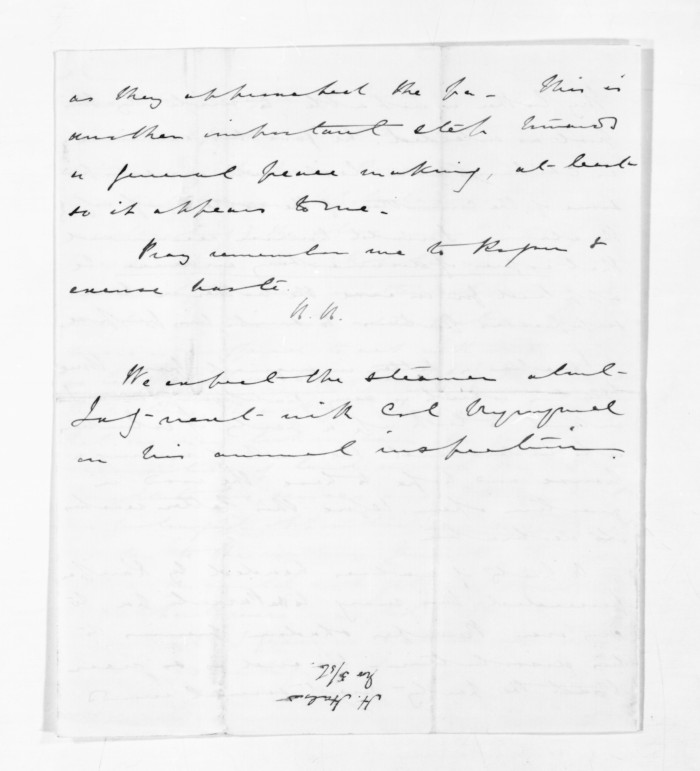 as they approached the pa - This is
another important step towards
a general peace making, at least
so it appears to me -
Pray remember me to Rogan &
excuse haste.
H. H.
We expect the steamer about
Inst next with Col Wynyard
on his annual inspection.
H. Halse